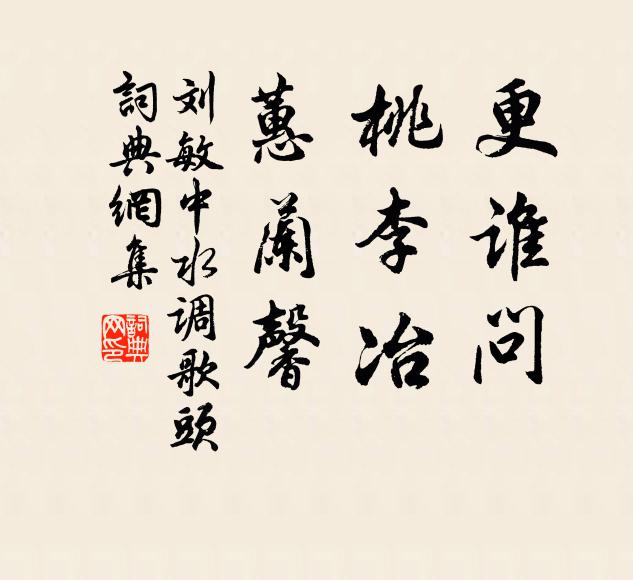 更谁问
桃李冶
蕙蘭馨
刘敏中水调歌頭
詞典網集
詞典网印